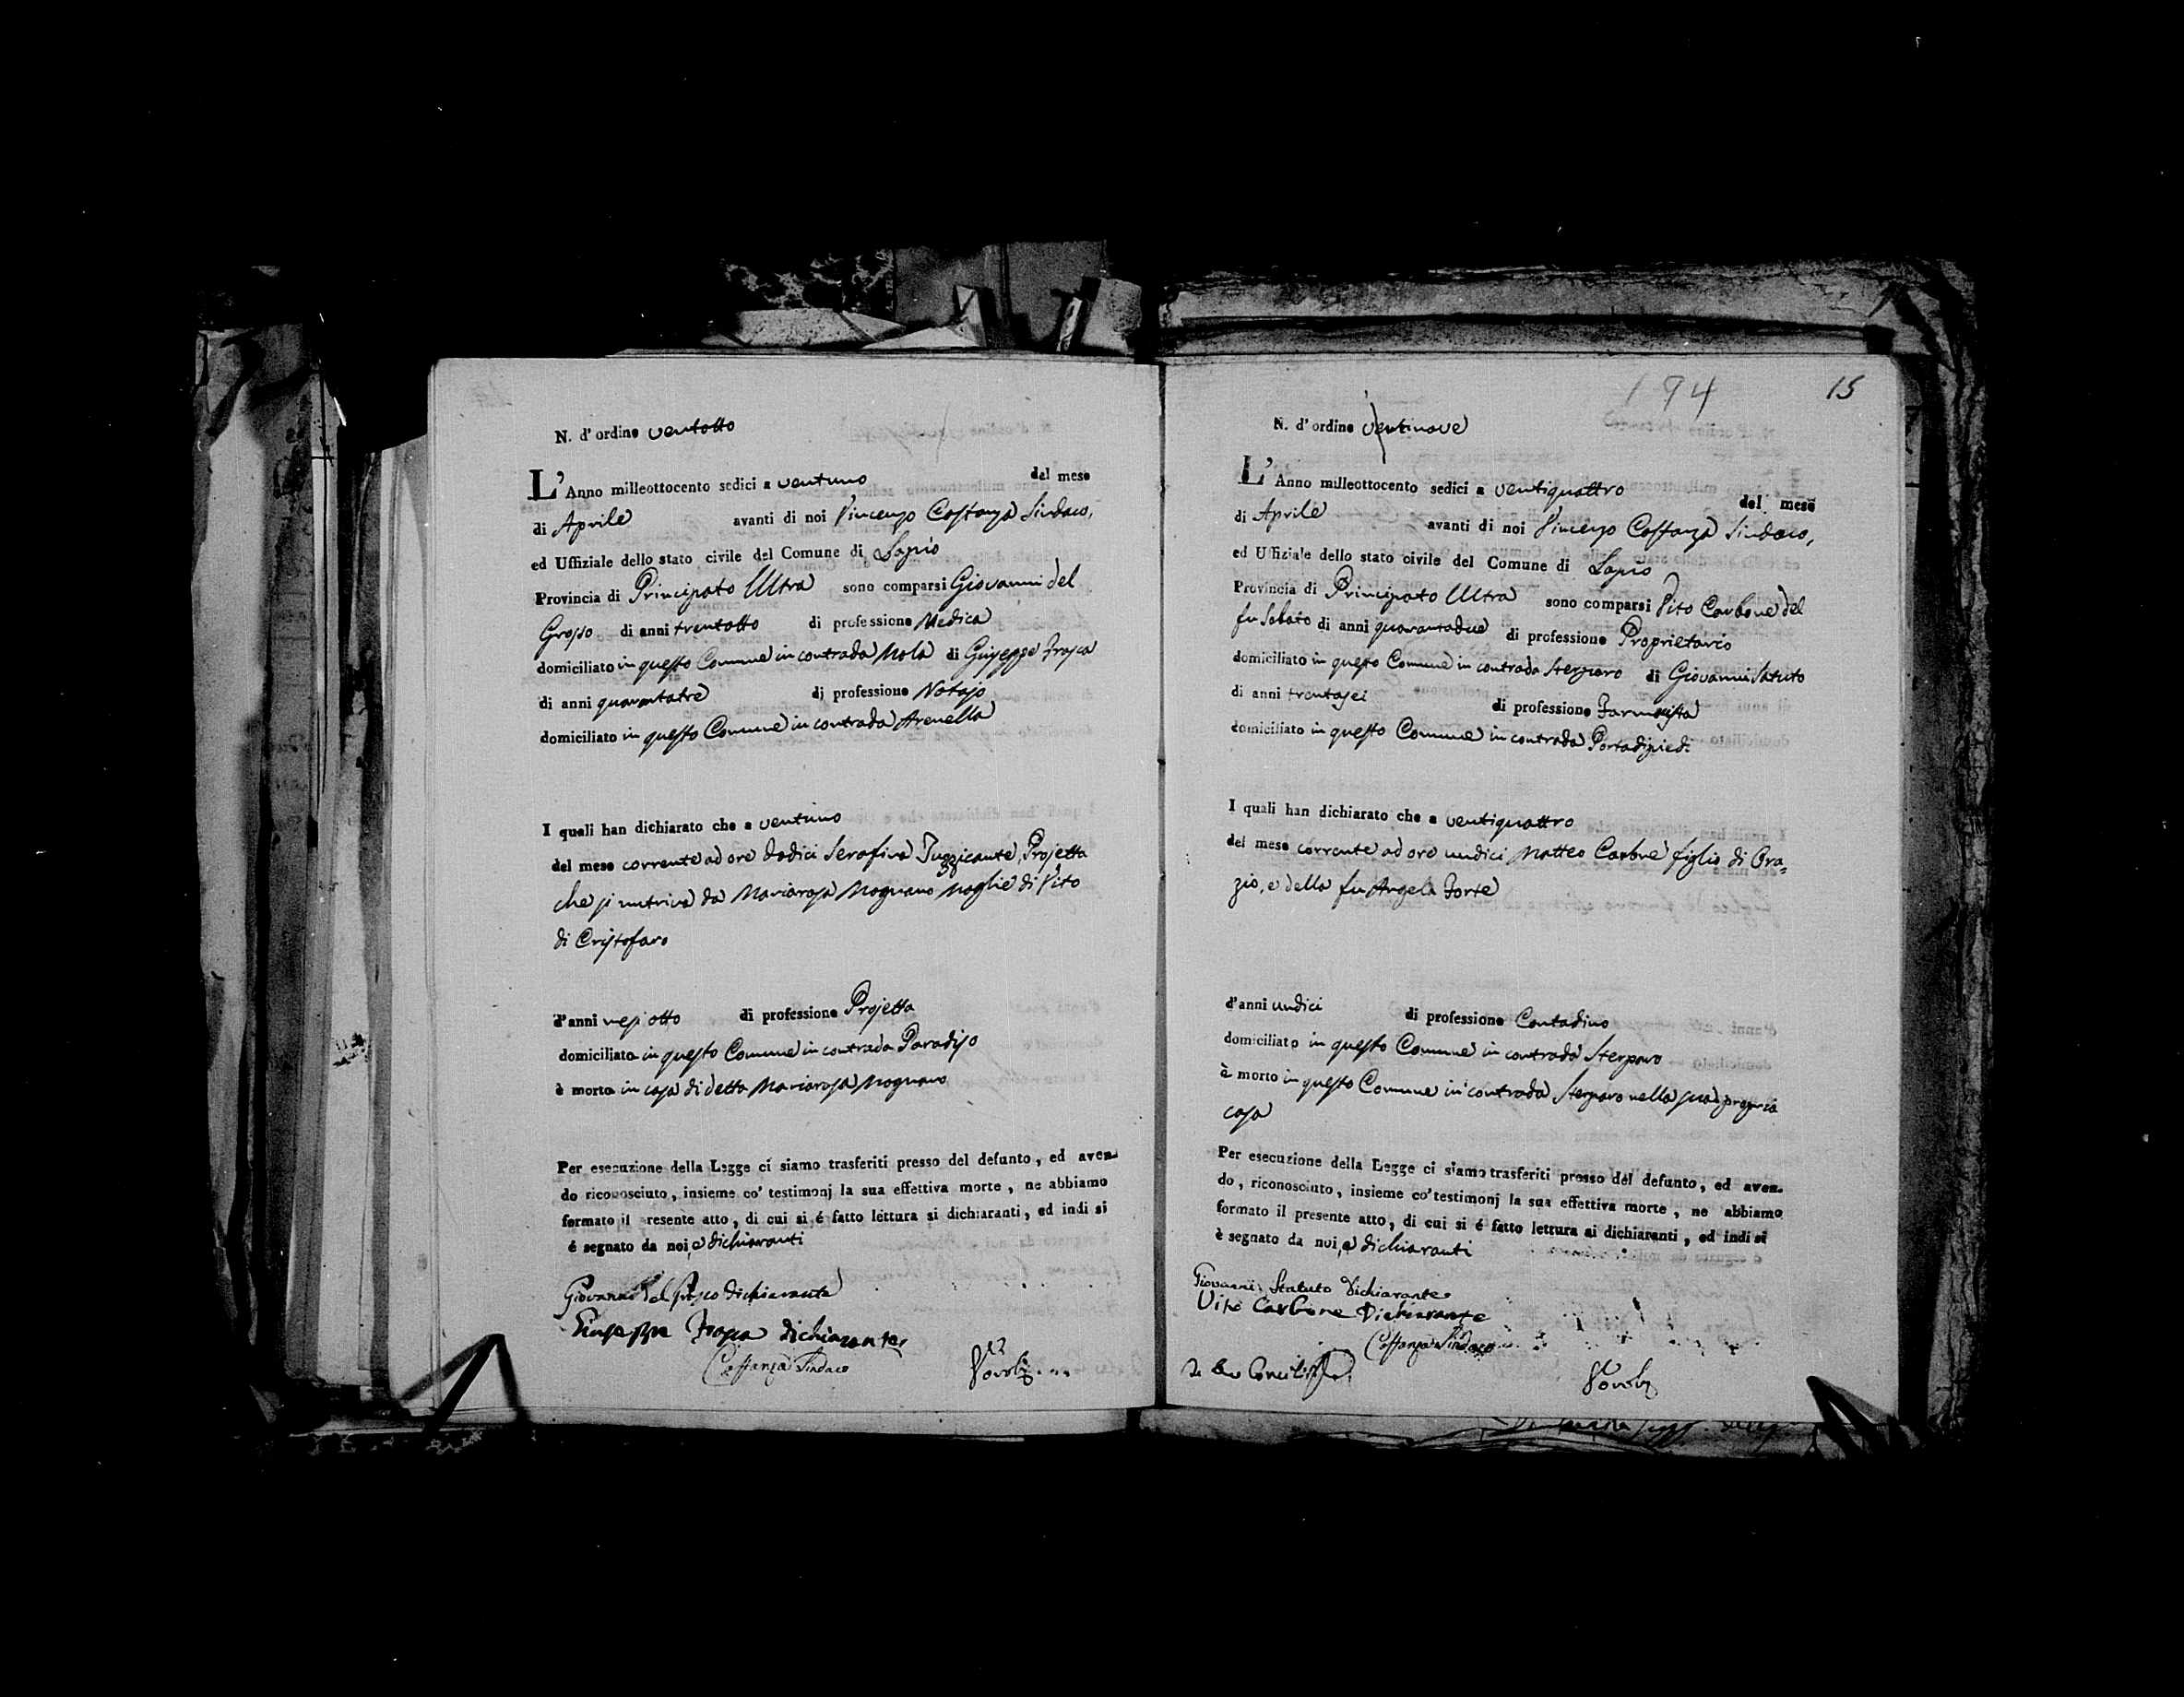 N. d'ordine ventotto
L'Anno milleottocento sedici a ventuno del mese
di Aprile avanti di noi Vincenzo Costanza Sindaco,
ed Uffiziale dello stato civile del Comune di Lapio
Provincia di Principato Ultra sono comparsi Giovanni del
Grosso di anni trentotto di professione Medica
domiciliato in questo Comune in contrada Mola di Giuseppe Frasca
di anni quarantatre di professione Notajo
domiciliato in questo Comune in contrada Arenella
I quali han dichiarato che a ventuno
del mese corrente ad ore dodici Serafina Projetta
che si nutriva da Mariarosa Mognano Moglie di Vito
di Cristofaro
d'anni mesi otto di professione Projetta
domiciliata in questo Comune in contrada Paradiso
è morta in casa di detta Mariarosa Mognano
Per esecuzione della Legge ci siamo trasferiti presso del defunto, ed aven-
do riconosciuto, insieme co' testimonj la sua effettiva morte, ne abbiamo
formato il resente atto, di cui si é fatto lettura si dichiaranti, ed indi si
é segnato da noi, e dichiaranti
Giovanni del Grosso dichiarante
Giuseppe Frasca dichiarante
Costanza Sindaco
194 15
N. d'ordine ventinove
L'Anno milleottocento sedici a ventiquattro del mese
di Aprile avanti di noi Vincenzo Costanza Sindaco,
ed Uffiziale dello stato civile del Comune di Lapio
Provincia di Principato Ultra sono comparsi Vito Carbone del
fu Sabato di anni quarantadue di professione Proprietario
domiciliato in questo Comune in contrada Sterparo di Giovanni Statuto
di anni trentasei di professione Farmacista
domiciliato in questo Comune in contrada Portadipiedi
I quali han dichiarato che a ventiquattro
del mese corrente ad ore undici Matteo Carbone figlio di Ora=
zio, e della fu Angela Forte
d'anni undici di professione Contadino
domiciliato in questo Comune in contrada Sterparo
è morto in questo Comune in contrada Sterparo nella sua propria
casa
Per esecuzione della Legge ci siamo trasferiti presso del defunto, ed aven-
do, riconosciuto, insieme co' testimonj la sua effettiva morte, ne abbiamo
formato il presente atto, di cui si é fatto lettura ai dichiaranti, ed indi si
è segnato da noi, e dichiaranti
Giovanni Statuto Dichiarante
Vito Carbone Dichiarante
Costanza Sindaco